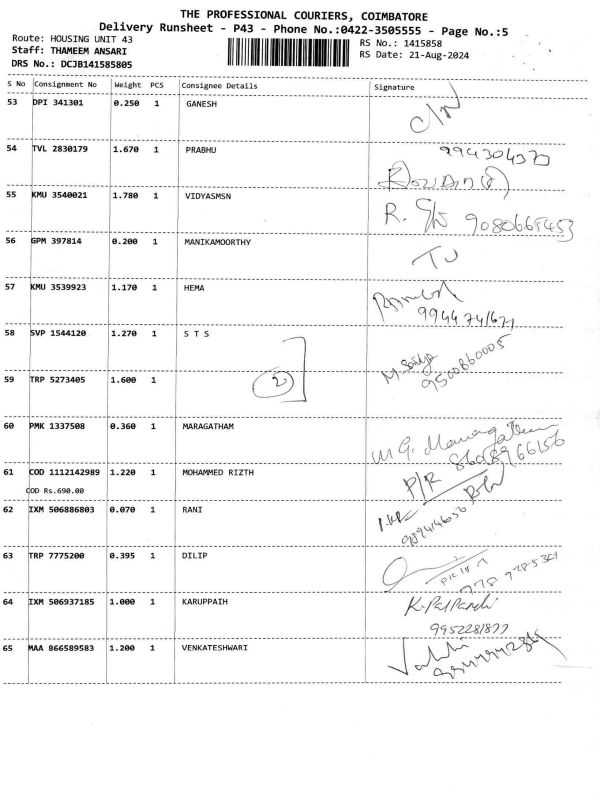 THE PROFESSIONAL COURIERS, COIMBATORE
Delivery Runsheet - P43 - Phone No.:0422-3505555 - Page No.:5
Route: HOUSING UNIT 43 RS No.: 1415858
Staff: THAMEEM ANSARI RS Date: 21-Aug-2024
DRS No.: DCJB141585805
S No Consignment No Weight PCS Consignee Details Signature
53 DPI 341301 0.250 1 GANESH
54 TVL 2830179 1.670 1 PRABHU
55 KMU 3540021 1.780 1 VIDYASMSN R. 9080665453
56 GPM 397814 0.200 1 MANIKAMOORTHY
57 KMU 3539923 1.170 1 HEMA
58 SVP 1544120 1.270 1 S T S 9500860005
59 TRP 5273405 1.600 1 2
60 PMK 1337508 0.360 1 MARAGATHAM M.G.
61 COD 1112142989 1.220 1 MOHAMMED RIZTH P/R
COD Rs.690.00
62 IXM 506886803 0.070 1 RANI
63 TRP 7775200 0.395 1 DILIP
64 IXM 506937185 1.000 1 KARUPPAIH
65 MAA 866589583 1.200 1 VENKATESHWARI